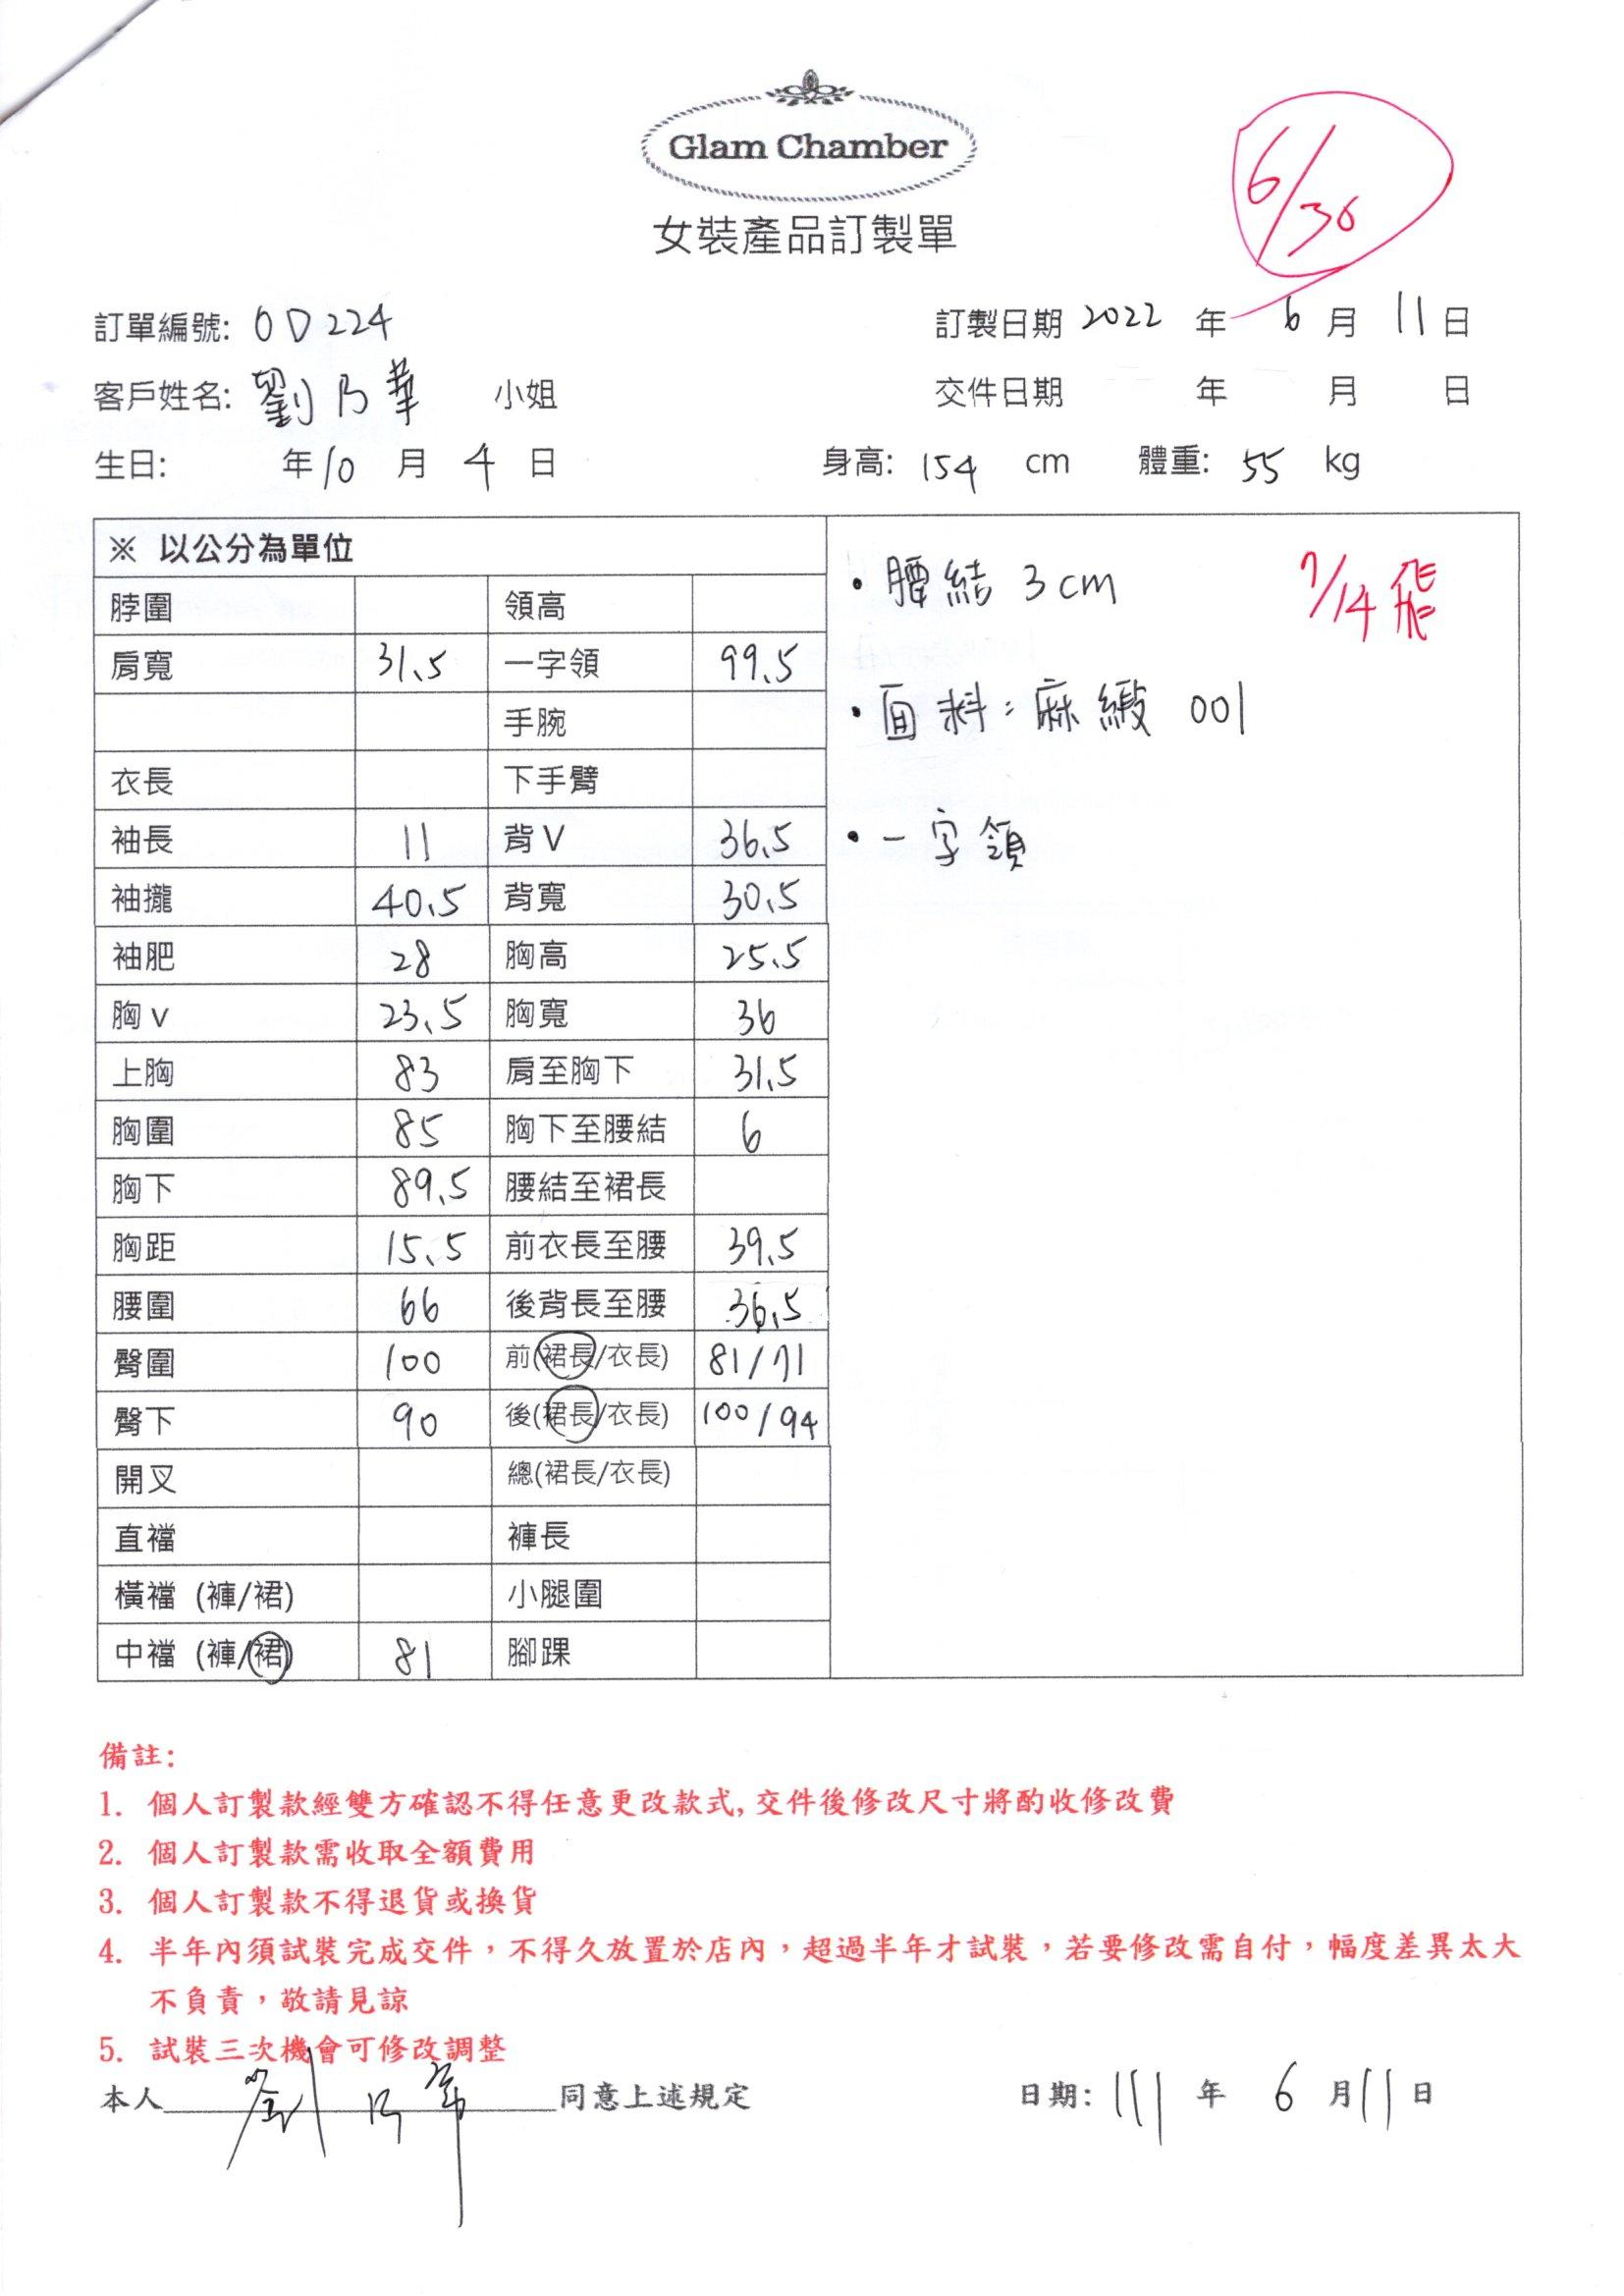 Glam Chamber
6/30
女裝產品訂製單
訂單編號: OD224 訂製日期 2022 年 6 月 11 日
客戶姓名: 劉乃華 小姐 交件日期 年 月 日
生日: 年 10 月 4 日 身高: 154 cm 體重: 55 kg
※ 以公分為單位
脖圍 領高
肩寬 31.5 一字領 99.5
手腕
衣長 下手臂
袖長 11 背V 36.5
袖攏 40.5 背寬 30.5
袖肥 28 胸高 25.5
胸v 23.5 胸寬 36
上胸 83 肩至胸下 31.5
胸圍 85 胸下至腰結 6
胸下 89.5 腰結至裙長
胸距 15.5 前衣長至腰 39.5
腰圍 66 後背長至腰 36.5
臀圍 100 前(裙長/衣長) 81/71
臀下 90 後(裙長/衣長) 100/94
開叉 總(裙長/衣長)
直襠 褲長
橫襠 (褲/裙) 小腿圍
中襠 (褲/裙) 81 腳踝
・腰結 3cm
7/14 飛
・面料:麻緞 001
・一字領
備註:
1. 個人訂製款經雙方確認不得任意更改款式, 交件後修改尺寸將酌收修改費
2. 個人訂製款需收取全額費用
3. 個人訂製款不得退貨或換貨
4. 半年內須試裝完成交件，不得久放置於店內，超過半年才試裝，若要修改需自付，幅度差異太大
不負責，敬請見諒
5. 試裝三次機會可修改調整
本人 劉乃華 同意上述規定 日期: 111 年 6 月 11 日